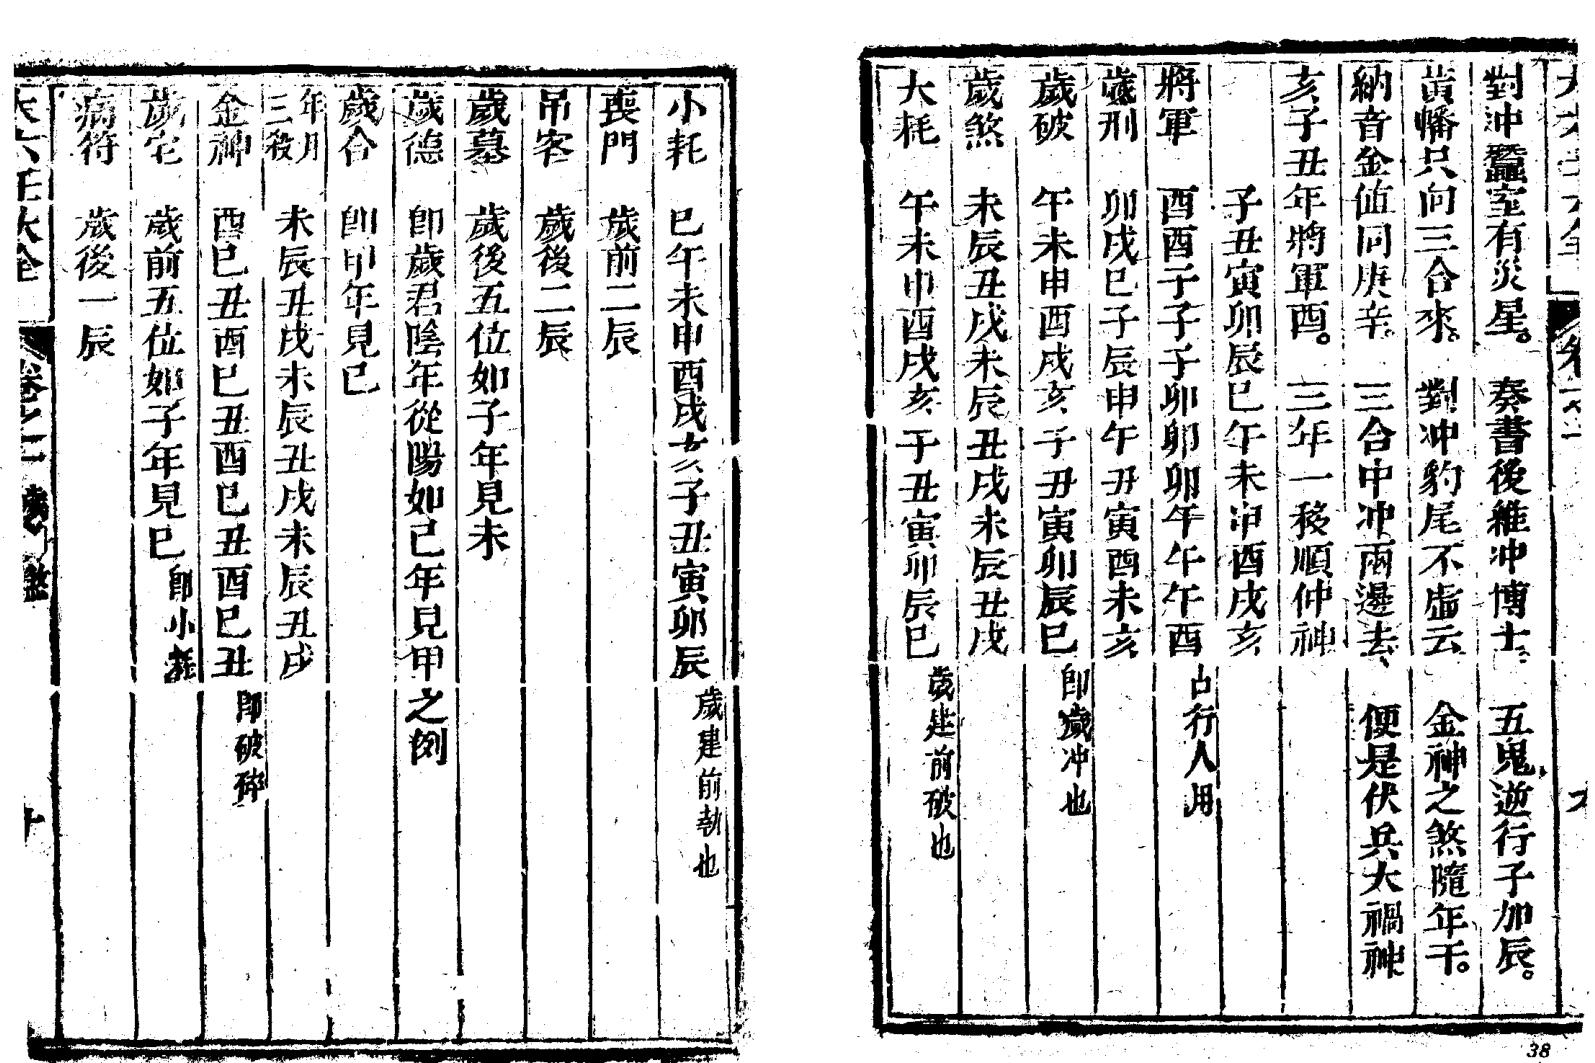 對冲蠶室有災星。 奏書後維冲博士、 五鬼逆行子加辰。
黃幡只向三合來。 對冲豹尾不虛云、 金神之煞隨年干。
納音金值同庚辛。 三合中冲兩邊去、 便是伏兵大禍神
亥子丑年將軍酉。 三年一移順仲神
子丑寅卯辰巳午未申酉戌亥
將軍 酉酉子子子卯卯卯午午午酉 占行人用
歲刑 卯戌巳子辰申午丑寅酉未亥
歲破 午未申酉戌亥子丑寅卯辰巳 即歲冲也
歲煞 未辰丑戌未辰丑戌未辰丑戌
大耗 午未申酉戌亥子丑寅卯辰巳 歲建前破也
小耗 巳午未申酉戌亥子丑寅卯辰 歲建前執也
喪門 歲前二辰
吊客 歲後二辰
歲墓 歲後五位如子年見未
歲德 即歲君陰年從陽如己年見甲之例
歲合 即甲年見己
年月三殺 未辰丑戌未辰丑戌未辰丑戌
金神 酉巳丑酉巳丑酉巳丑酉巳丑 即破碎
歲宅 歲前五位如子年見巳 即小耗
病符 歲後一辰
大六壬大全 卷之一 歲煞 十
38